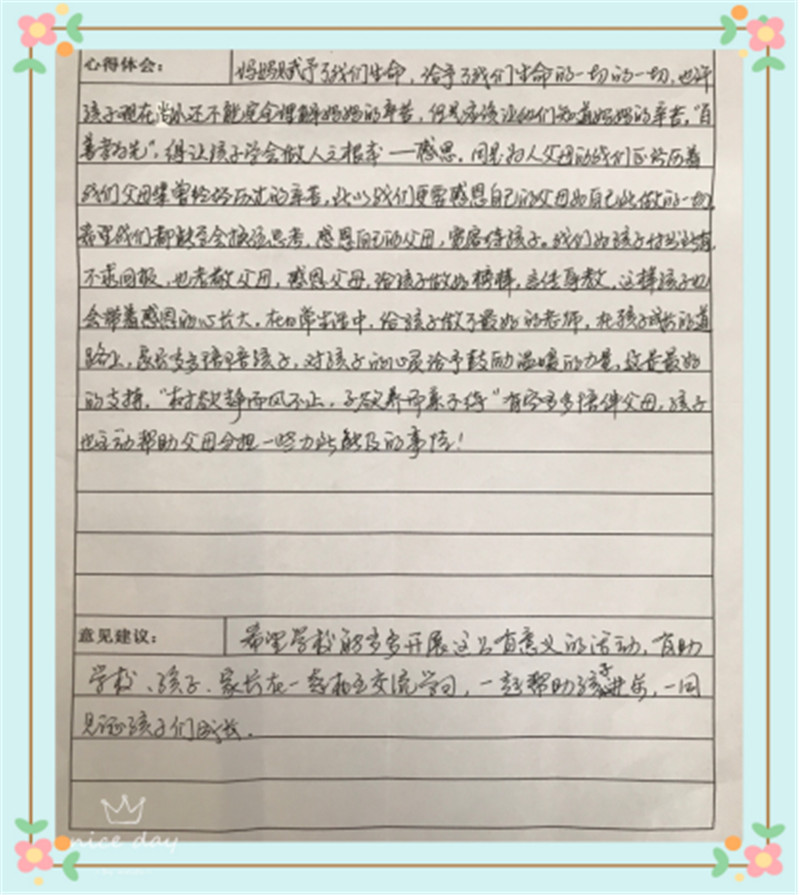 心得体会： 妈妈赋予了我们生命，给予了我们生命的一切的一切，也许
孩子现在当小还不能完全理解妈妈的辛苦，但是应该让他们知道妈妈的辛苦。“百
善孝为先”，得让孩子学会做人之根本——感恩。同是为人父母的我们正经历着
我们父母辈曾经经历过的辛苦，所以我们更需感恩自己的父母为自己所做的一切
希望我们都能学会换位思考，感恩自己的父母，宽容待孩子。我们为孩子付出所有
不求回报，也孝敬父母，感恩父母，给孩子做好榜样，言传身教，这样孩子也
会带着感恩的心长大。在日常生活中，给孩子做了最好的老师，在孩子成长的道
路上，家长多多陪陪孩子，对孩子的心灵给予鼓励温暖的力量，这是最好
的支持，“树欲静而风不止，子欲养而亲不待”有空多多陪伴父母，孩子
也主动帮助父母分担一些力所能及的事情！
意见建议： 希望学校能多多开展这么有意义的活动，有助
学校、孩子、家长在一起相互交流学习，一起帮助孩子进步，一同
见证孩子们成长.
nice day